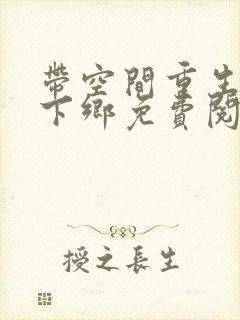 帶空間重生
下鄉免費閱
授之長生